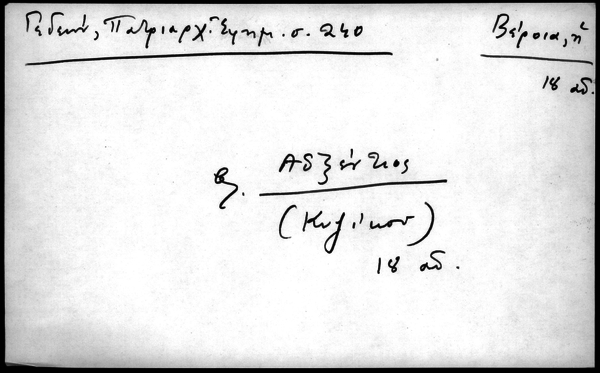 Γεδεών, Πατριαρχ. Εφημ. σ. 240
Βέροια, ἡ
18 αἰ.
βλ. Αὐξέντιος
(Κυζίκου)
18 αἰ.